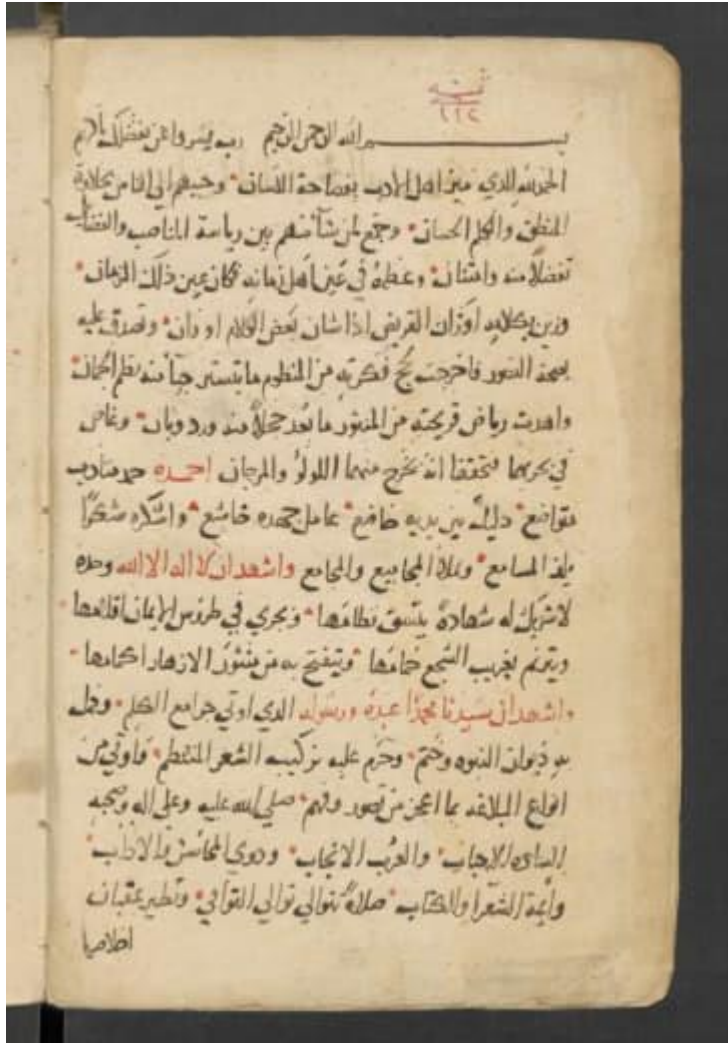 ١١٢
بسم الله الرحمن الرحيم رب يسر واعن بفضلك
الحمد لله الذي ميز اهل الادب بفصاحة اللسان وحببهم الى الناس بحلاوة
المنطق والكلم الحسان وجمع لمن شآ منهم بين رياسة المناصب والفضايل
تفضلاً منه وامتنان وعظمهُ في عين اهل زمانه فكان عين ذلك الزمان
وزين بكلامه اوزان القريض اذا شان بعض الكلام اوزان وتصدق عليه
فاخرجت فكرته من المنظوم ما يستبر حيآ منه نظم الجمان
واهدت رياض قريحته من المنثور ما يعد خجلاً منه ورد وبان وغاص
في بحريهما فتحققا انهُ يخرج منهما اللولؤ والمرجان احمده حمد متادب
متواضع ذليلٌ بين يديه خاضع عامل جهده خاشع واشكره شكرًا
يلذ المسامع ويملا المجاميع والمجامع واشهد ان لا اله الا الله وحده
لا شريك له شهادةً يتسق نظامها ويجري في طروس الايمان اقلامها
ويترنم بغريب السجع حمامها ويتفتح به من منثور الازهار اكمامها
واشهد ان سيدنا محمدًا عبدهُ ورسوله الذي اوتي جوامع الكلم وكمل
به ديوان النبوه وختم وحرم عليه تركيب الشعر المنتظم فاوتي من
انواع البلاغه بما اعجز من تصور وفهم صلى الله عليه وعلى اله وصحبه
الساده الانجاب والعرب الانجاب وذوي المحاسن والاداب
وأيمة الشعرآ والكتاب صلاةً تتوالى توالي القوافي وتطير عقبان
اخلاصها